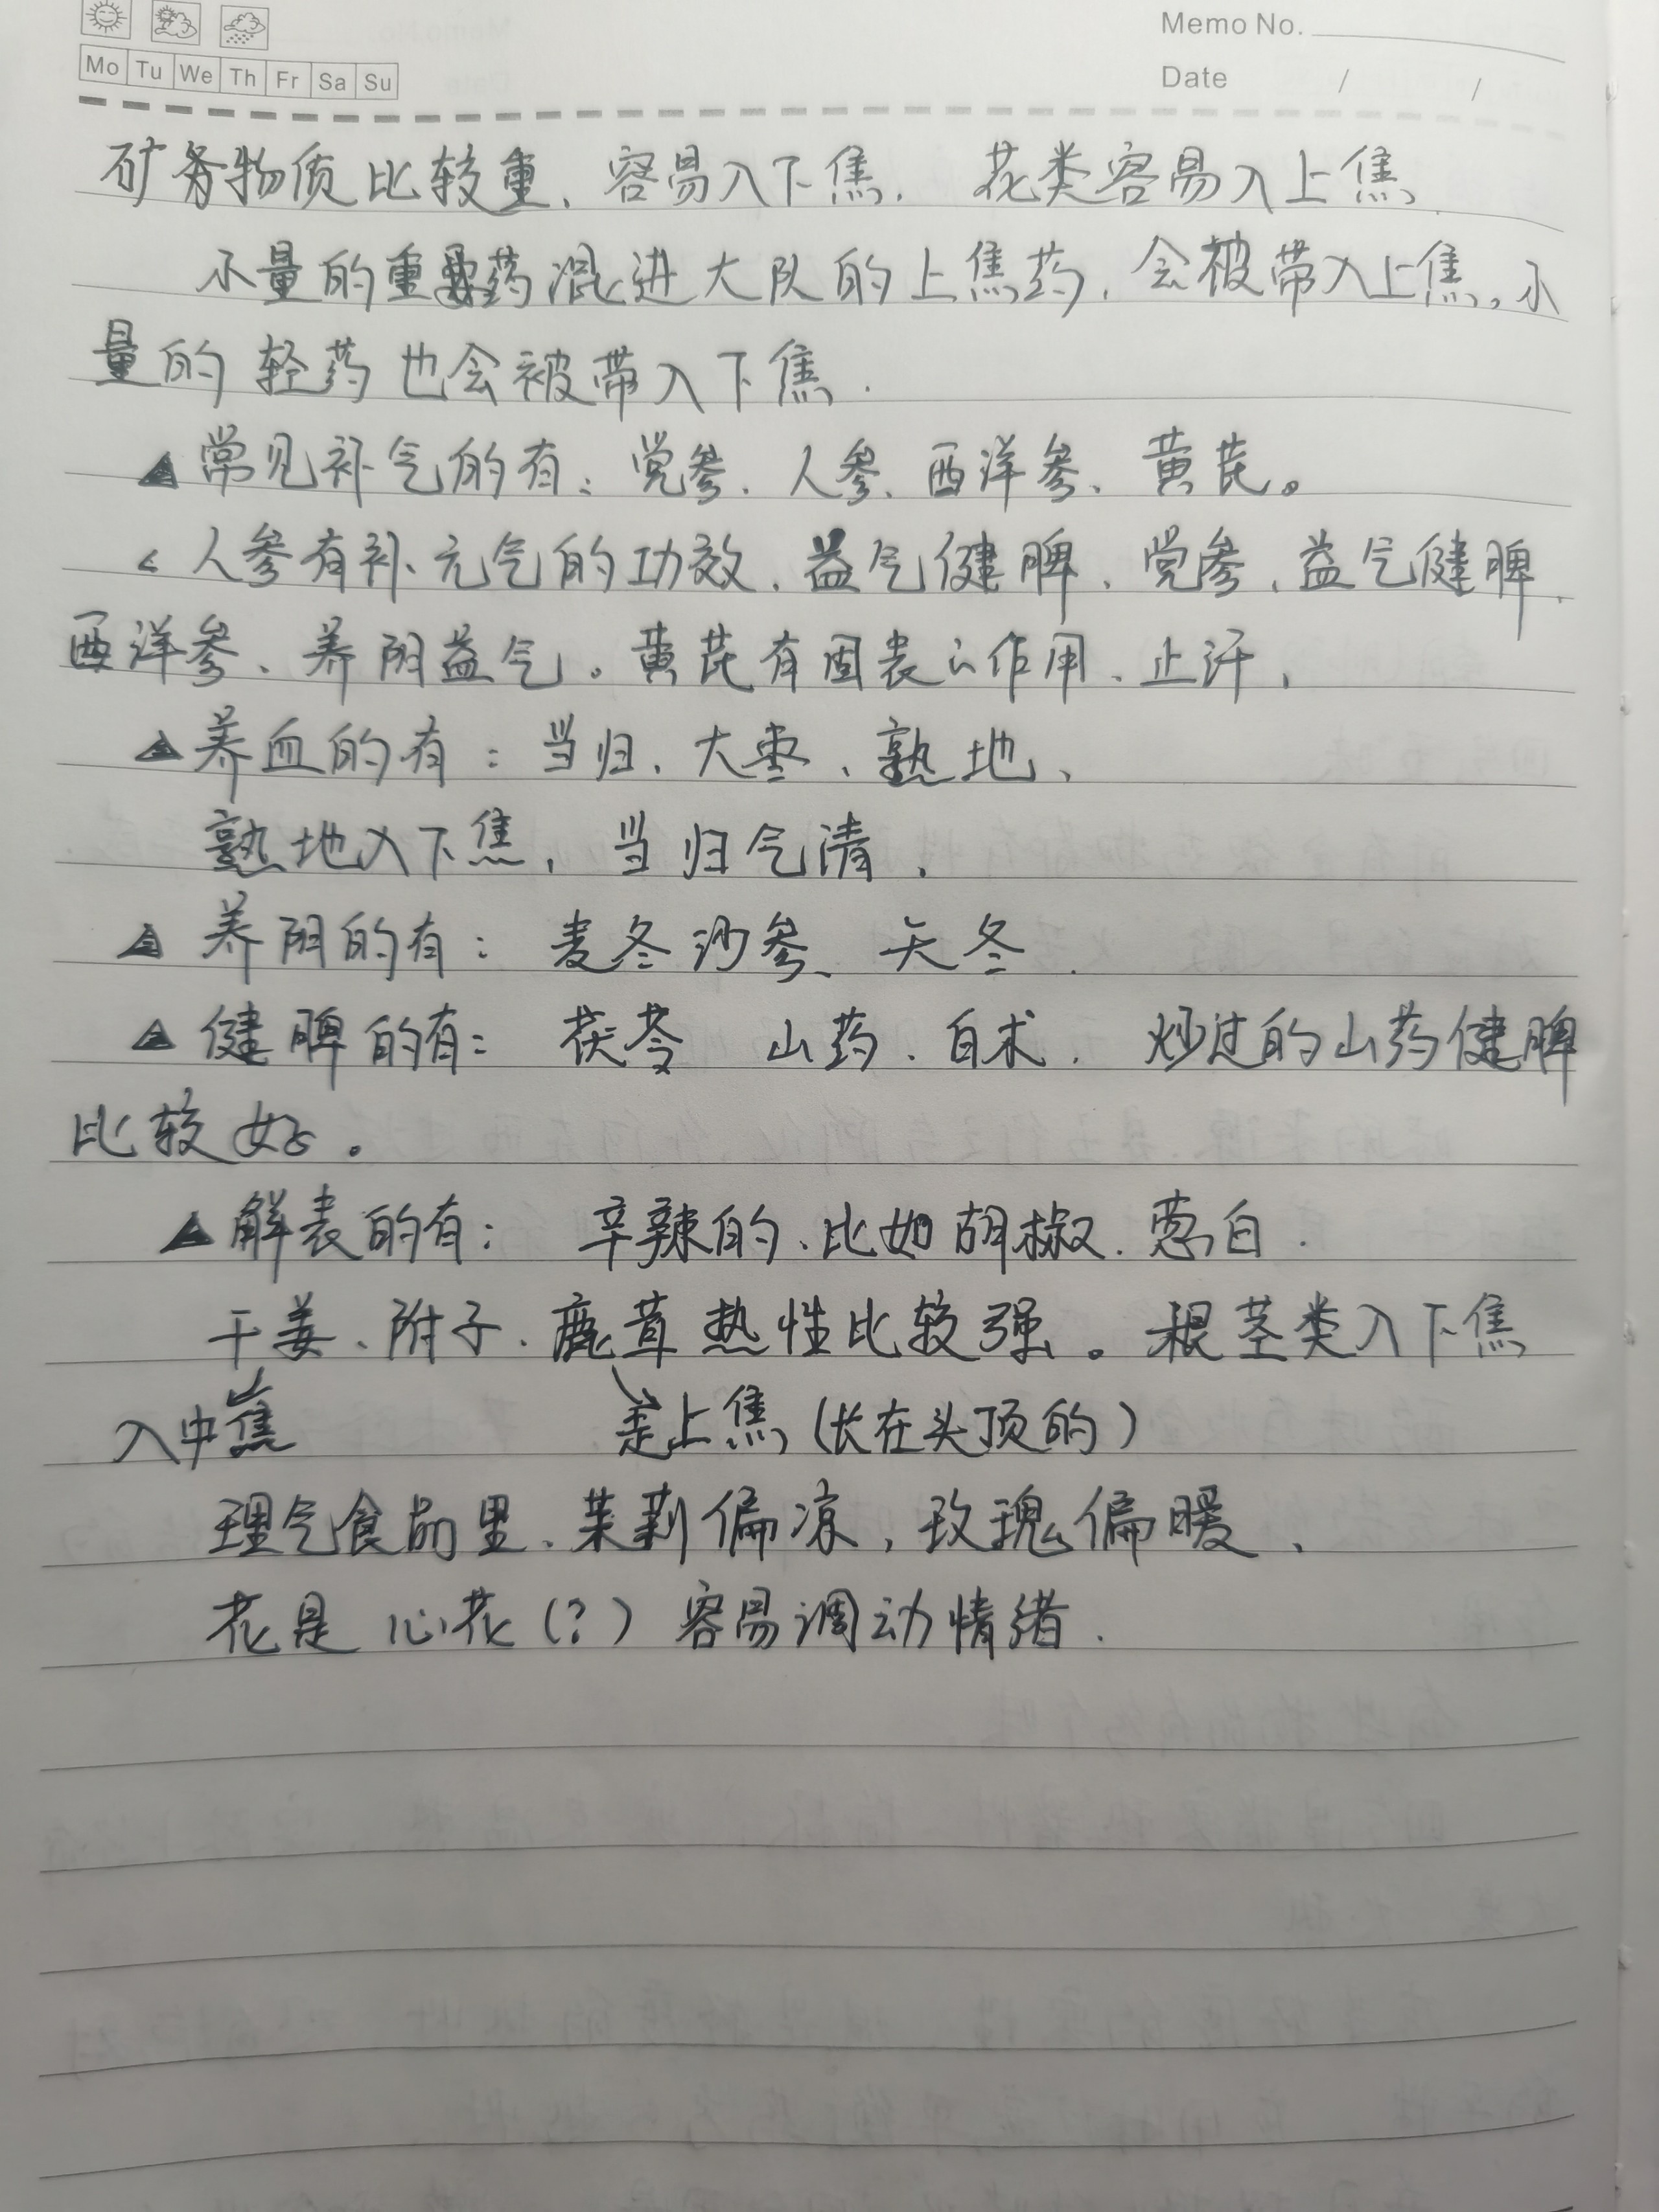 Memo No.
Mo Tu We Th Fr Sa Su
Date / /
矿务物质比较重、容易入下焦. 花类容易入上焦.
小量的重药混进大队的上焦药,会被带入上焦。小
量的轻药也会被带入下焦.
▲常见补气的有:党参、人参、西洋参、黄芪。
人参有补元气的功效、益气健脾、党参、益气健脾、
西洋参、养阴益气。黄芪有固表之作用、止汗,
▲养血的有:当归、大枣、熟地、
熟地入下焦,当归气清.
▲养阴的有:麦冬沙参、天冬.
▲健脾的有:茯苓 山药、白术. 炒过的山药健脾
比较好。
▲解表的有: 辛辣的、比如胡椒、葱白.
干姜、附子、鹿茸热性比较强。根茎类入下焦
入中焦 走上焦(长在头顶的)
理气食品里、茉莉偏凉,玫瑰偏暖、
花是心花(?)容易调动情绪.